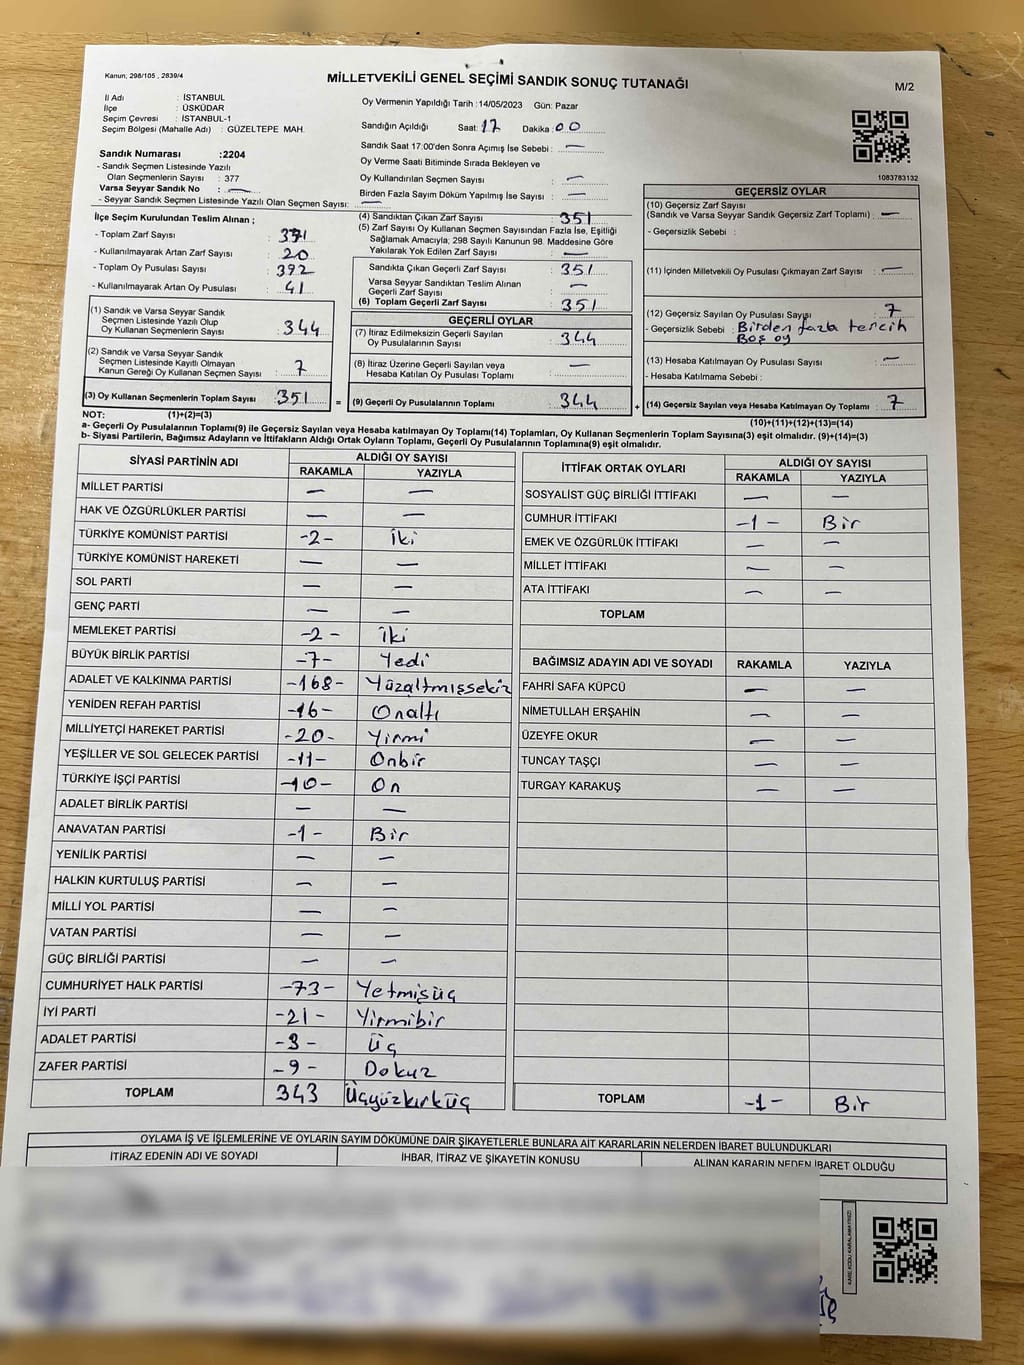 Kanun, 298/105 , 2839/4
MİLLETVEKİLİ GENEL SEÇİMİ SANDIK SONUÇ TUTANAĞI
M/2
İl Adı : İSTANBUL
İlçe : ÜSKÜDAR
Seçim Çevresi : İSTANBUL-1
Seçim Bölgesi (Mahalle Adı) : GÜZELTEPE MAH.
Sandık Numarası :2204
- Sandık Seçmen Listesinde Yazılı
Olan Seçmenlerin Sayısı : 377
Varsa Seyyar Sandık No : —
- Seyyar Sandık Seçmen Listesinde Yazılı Olan Seçmen Sayısı: —
Oy Vermenin Yapıldığı Tarih :14/05/2023 Gün: Pazar
Sandığın Açıldığı Saat: 17 Dakika: 00
Sandık Saat 17:00'den Sonra Açılmış İse Sebebi : —
Oy Verme Saati Bitiminde Sırada Bekleyen ve
Oy Kullandırılan Seçmen Sayısı : —
Birden Fazla Sayım Döküm Yapılmış İse Sayısı : —
1083783132
İlçe Seçim Kurulundan Teslim Alınan ;
- Toplam Zarf Sayısı : 371
- Kullanılmayarak Artan Zarf Sayısı : 20
- Toplam Oy Pusulası Sayısı : 392
- Kullanılmayarak Artan Oy Pusulası : 41
(1) Sandık ve Varsa Seyyar Sandık
Seçmen Listesinde Yazılı Olup
Oy Kullanan Seçmenlerin Sayısı : 344
(2) Sandık ve Varsa Seyyar Sandık
Seçmen Listesinde Kayıtlı Olmayan
Kanun Gereği Oy Kullanan Seçmen Sayısı : 7
(3) Oy Kullanan Seçmenlerin Toplam Sayısı : 351 =
(4) Sandıktan Çıkan Zarf Sayısı : 351
(5) Zarf Sayısı Oy Kullanan Seçmen Sayısından Fazla İse, Eşitliği
Sağlamak Amacıyla; 298 Sayılı Kanunun 98. Maddesine Göre
Yakılarak Yok Edilen Zarf Sayısı : —
Sandıkta Çıkan Geçerli Zarf Sayısı : 351
Varsa Seyyar Sandıktan Teslim Alınan
Geçerli Zarf Sayısı : —
(6) Toplam Geçerli Zarf Sayısı : 351
GEÇERLİ OYLAR
(7) İtiraz Edilmeksizin Geçerli Sayılan
Oy Pusulalarının Sayısı : 344
(8) İtiraz Üzerine Geçerli Sayılan veya
Hesaba Katılan Oy Pusulası Toplamı : —
(9) Geçerli Oy Pusulalarının Toplamı : 344 +
GEÇERSİZ OYLAR
(10) Geçersiz Zarf Sayısı
(Sandık ve Varsa Seyyar Sandık Geçersiz Zarf Toplamı) : —
- Geçersizlik Sebebi :
(11) İçinden Milletvekili Oy Pusulası Çıkmayan Zarf Sayısı : —
(12) Geçersiz Sayılan Oy Pusulası Sayısı : 7
- Geçersizlik Sebebi : Birden fazla tercih
Boş oy
(13) Hesaba Katılmayan Oy Pusulası Sayısı : —
- Hesaba Katılmama Sebebi :
(14) Geçersiz Sayılan veya Hesaba Katılmayan Oy Toplamı : 7
NOT: (1)+(2)=(3)
(10)+(11)+(12)+(13)=(14)
a- Geçerli Oy Pusulalarının Toplamı(9) ile Geçersiz Sayılan veya Hesaba Katılmayan Oy Toplamı(14) Toplamları, Oy Kullanan Seçmenlerin Toplam Sayısına(3) eşit olmalıdır. (9)+(14)=(3)
b- Siyasi Partilerin, Bağımsız Adayların ve İttifakların Aldığı Ortak Oyların Toplamı, Geçerli Oy Pusulalarının Toplamına(9) eşit olmalıdır.
SİYASİ PARTİNİN ADI ALDIĞI OY SAYISI
RAKAMLA YAZIYLA
MİLLET PARTİSİ — —
HAK VE ÖZGÜRLÜKLER PARTİSİ — —
TÜRKİYE KOMÜNİST PARTİSİ -2- İki
TÜRKİYE KOMÜNİST HAREKETİ — —
SOL PARTİ — —
GENÇ PARTİ — —
MEMLEKET PARTİSİ -2- İki
BÜYÜK BİRLİK PARTİSİ -7- Yedi
ADALET VE KALKINMA PARTİSİ -168- Yüzaltmışsekiz
YENİDEN REFAH PARTİSİ -16- Onaltı
MİLLİYETÇİ HAREKET PARTİSİ -20- Yirmi
YEŞİLLER VE SOL GELECEK PARTİSİ -11- Onbir
TÜRKİYE İŞÇİ PARTİSİ -10- On
ADALET BİRLİK PARTİSİ — —
ANAVATAN PARTİSİ -1- Bir
YENİLİK PARTİSİ — —
HALKIN KURTULUŞ PARTİSİ — —
MİLLİ YOL PARTİSİ — —
VATAN PARTİSİ — —
GÜÇ BİRLİĞİ PARTİSİ — —
CUMHURİYET HALK PARTİSİ -73- Yetmişüç
İYİ PARTİ -21- Yirmibir
ADALET PARTİSİ -3- Üç
ZAFER PARTİSİ -9- Dokuz
TOPLAM 343 Üçyüzkırküç
İTTİFAK ORTAK OYLARI ALDIĞI OY SAYISI
RAKAMLA YAZIYLA
SOSYALİST GÜÇ BİRLİĞİ İTTİFAKI — —
CUMHUR İTTİFAKI -1- Bir
EMEK VE ÖZGÜRLÜK İTTİFAKI — —
MİLLET İTTİFAKI — —
ATA İTTİFAKI — —
TOPLAM
BAĞIMSIZ ADAYIN ADI VE SOYADI RAKAMLA YAZIYLA
FAHRİ SAFA KÜPCÜ — —
NİMETULLAH ERŞAHİN — —
ÜZEYFE OKUR — —
TUNCAY TAŞÇI — —
TURGAY KARAKUŞ — —
TOPLAM -1- Bir
OYLAMA İŞ VE İŞLEMLERİNE VE OYLARIN SAYIM DÖKÜMÜNE DAİR ŞİKAYETLERLE BUNLARA AİT KARARLARIN NELERDEN İBARET BULUNDUKLARI
İTİRAZ EDENİN ADI VE SOYADI İHBAR, İTİRAZ VE ŞİKAYETİN KONUSU ALINAN KARARIN NEDEN İBARET OLDUĞU
KARE KODU KARALAMAYINIZ!